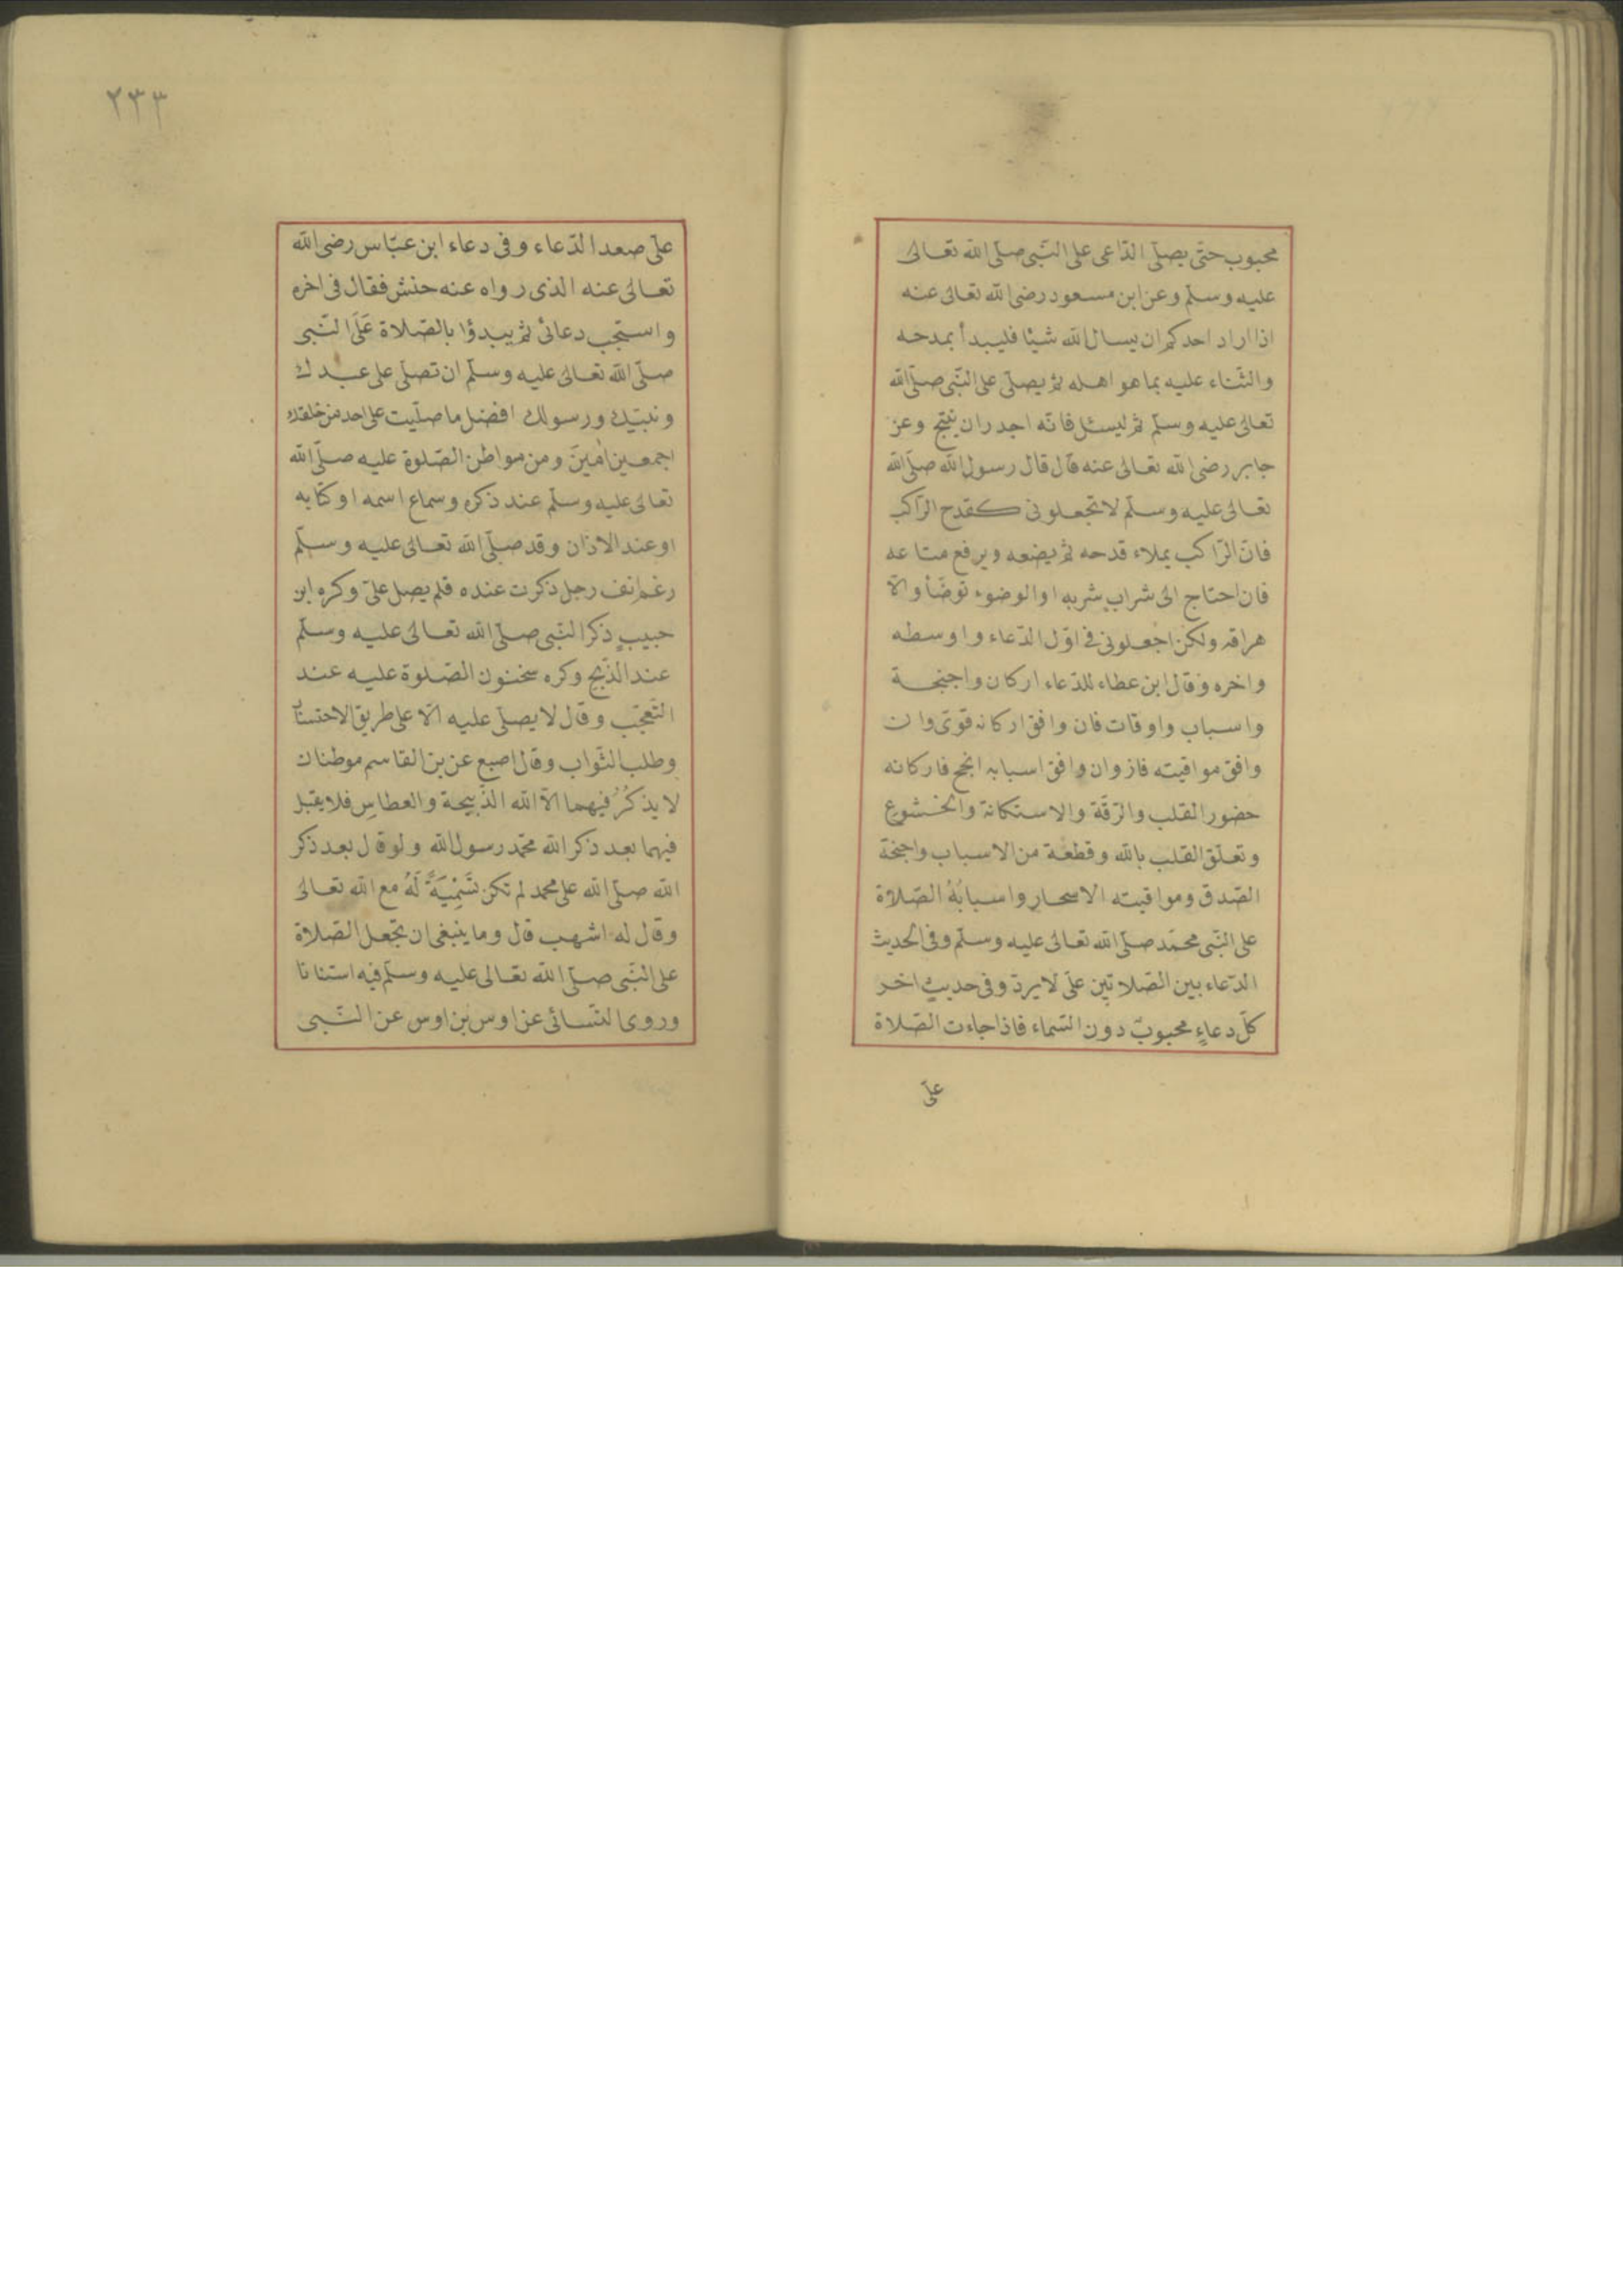 محبوب حتّى يصلّى الدّاعى على النّبى صلّى الله تعالى
عليه وسلّم وعن ابن مسعود رضى الله تعالى عنه
اذا اراد احدكم ان يسال الله شيئا فليبدأ بمدحه
والثّناء عليه بما هو اهله ثم يصلّى على النّبى صلّى الله
تعالى عليه وسلّم ثم ليسئل فانّه اجدر ان ينجح وعن
جابر رضى الله تعالى عنه قال قال رسول الله صلّى الله
تعالى عليه وسلّم لا تجعلونى كقدح الرّاكب
فانّ الرّاكب يملاء قدحه ثم يضعه ويرفع متاعه
فان احتاج الى شراب شربه او الوضوء توضّأ والّا
هراقه ولكن اجعلونى فى اوّل الدّعاء واوسطه
واخره وقال ابن عطاء للدّعاء اركان واجنحة
واسباب واوقات فان وافق اركانه قوّى وان
وافق مواقيته فاز وان وافق اسبابه انجح فاركانه
حضور القلب والرّقّة والاستكانة والخشوع
وتعلّق القلب بالله وقطعة من الاسباب واجنحة
الصّدق ومواقيته الاسحار واسبابُهُ الصّلاة
على النّبى محمّد صلّى الله تعالى عليه وسلّم وفى الحديث
الدّعاء بين الصّلاتين علىّ لا يردّ وفى حديثٍ اخر
كلّ دعاءٍ محبوبٌ دون السّماء فاذا جاءت الصّلاة
علىّ
٢٣٣
علىّ صعد الدّعاء وفى دعاء ابن عبّاس رضى الله
تعالى عنه الذى رواه عنه حنش فقال فى اخره
واستجب دعائى ثم يبدؤا بالصّلاة عَلَى النّبى
صلّى الله تعالى عليه وسلّم ان تصلّى على عبدك
ونبيّك ورسولك افضل ما صلّيت على احد من خلقك
اجمعين اٰمين ومن مواطن الصّلوة عليه صلّى الله
تعالى عليه وسلّم عند ذكره وسماع اسمه او كتابه
او عند الاذان وقد صلّى الله تعالى عليه وسلّم
رغم انف رجل ذكرت عنده فلم يصل علىّ وكره ابن
حبيبٍ ذكر النّبى صلّى الله تعالى عليه وسلّم
عند الذّبح وكره سخنون الصّلوة عليه عند
التّعجّب وقال لا يصلّى عليه الّا على طريق الاحتساب
وطلب الثّواب وقال اصبع عن بن القاسم موطنان
لا يذكُرُ فيهما الّا الله الذّبيحة والعطاسِ فلا يقبل
فيهما بعد ذكر الله محمّد رسول الله ولو قال بعد ذكر
الله صلّى الله على محمد لم تكن تَسْمِيَةً لَهُ مع الله تعالى
وقال له اشهب قال وما ينبغى ان تجعل الصّلاة
على النّبى صلّى الله تعالى عليه وسلّم فيه استنانا
وروى النّسائى عن اوس بن اوس عن النّبى